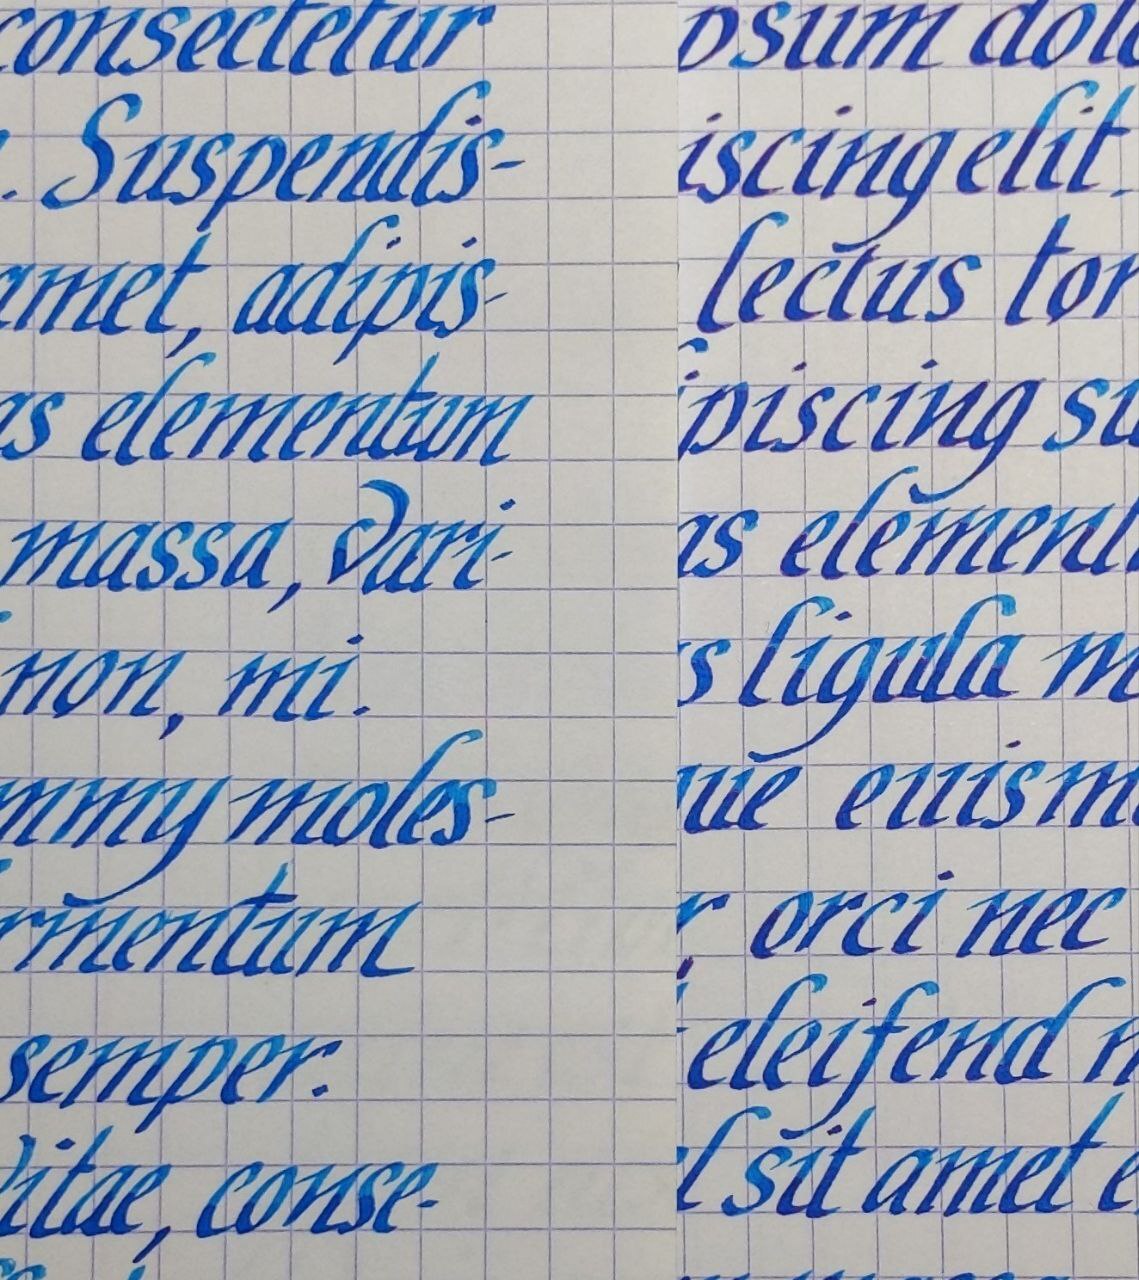 consectetur
. Suspendis-
amet, adipis-
as elementum
massa, Vari-
non, mi.
mmy moles-
rmentum
semper.
Vitae, conse-
psum dolo
iscing elit.
lectus tor
ipiscing su
as element
s ligula m
que euism
r orci nec
eleifend n
el sit amet e